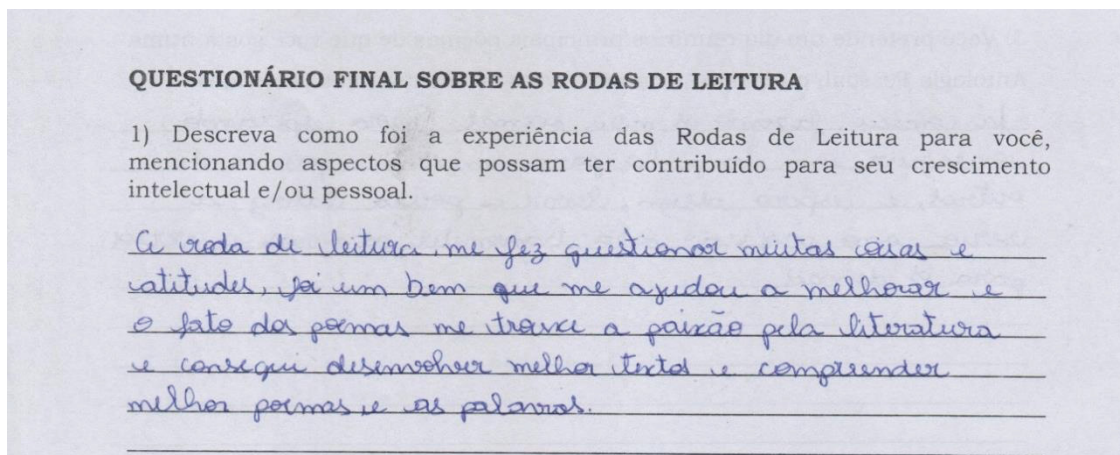 QUESTIONÁRIO FINAL SOBRE AS RODAS DE LEITURA
1) Descreva como foi a experiência das Rodas de Leitura para você,
mencionando aspectos que possam ter contribuído para seu crescimento
intelectual e/ou pessoal.
A roda de leitura me fez questionar muitas coisas e
atitudes, foi um bem que me ajudou a melhorar e
o fato dos poemas me trouxe a paixão pela literatura
e consegui desenvolver melhor textos e compreender
melhor poemas e as palavras.